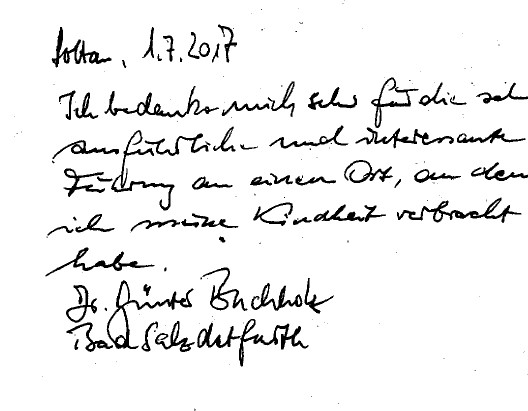 Soltau, 1.7.2017
Ich bedanke mich sehr für die seh
ausführliche und interessante
Führung an einem Ort, an dem
ich meine Kindheit verbracht
habe.
Dr. Günter Buchholz
Bad Salzdetfurth